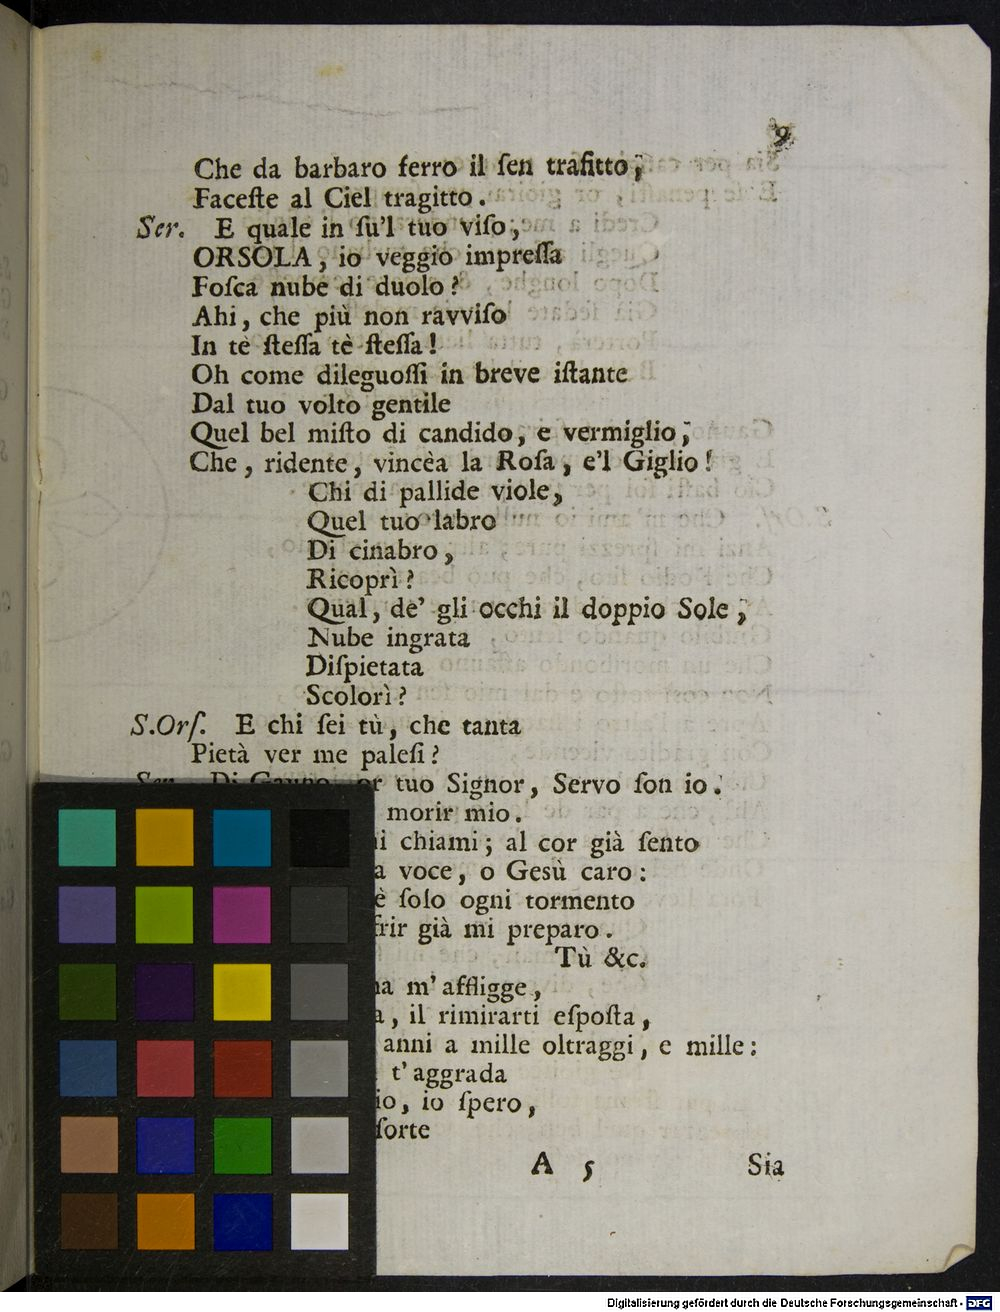 9
Che da barbaro ferro il ſen trafitto,
Faceſte al Ciel tragitto.
Ser. E quale in ſu'l tuo viſo,
ORSOLA, io veggio impreſſa
Foſca nube di duolo?
Ahi, che più non ravviſo
In tè ſteſſa tè ſteſſa!
Oh come dileguoſſi in breve iſtante
Dal tuo volto gentile
Quel bel miſto di candido, e vermiglio,
Che, ridente, vincèa la Roſa, e'l Giglio!
Chi di pallide viole,
Quel tuo labro
Di cinabro,
Ricoprì?
Qual, de' gli occhi il doppio Sole,
Nube ingrata
Diſpietata
Scolorì?
S.Orſ. E chi ſei tù, che tanta
Pietà ver me paleſi?
Ser. Di Gauno, or tuo Signor, Servo ſon io.
morir mio.
chiami; al cor già ſento
voce, o Gesù caro:
ſolo ogni tormento
già mi preparo.
Tù &c.
m'affligge,
il rimirarti eſpoſta,
anni a mille oltraggi, e mille:
t'aggrada
io ſpero,
ſorte
A 5 Sia
Digitalisierung gefördert durch die Deutsche Forschungsgemeinschaft - DFG